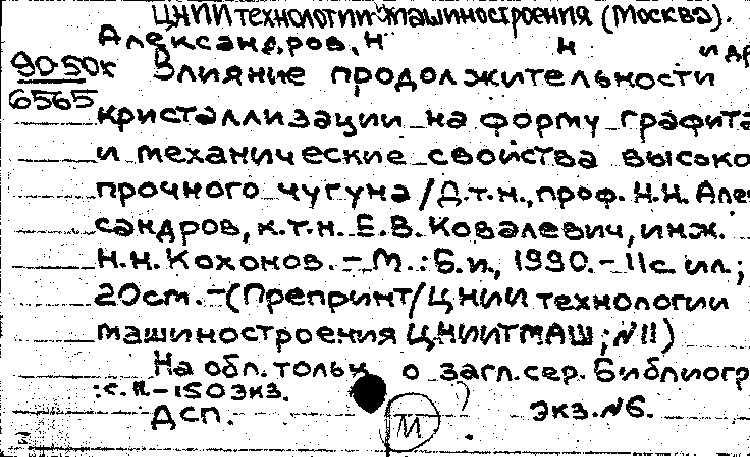 ЦНИИ технологии машиностроения (Москва).
Александров, Н Н и др
9050к Влияние продолжительности
6565 кристаллизации на форму графита
и механические свойства высоко
прочного чугуна / Д.т.н., проф. Н.Н. Алек
сандров, к.т.н. Е.В. Ковалевич, инж.
Н.Н. Кохонов. – М.: Б.и., 1990. – 11с ил.;
20см. – (Препринт/ЦНИИ технологии
машиностроения ЦНИИТМАШ; №11)
На обл. тольк о загл. сер. Библиогр
: с. 11 – 150 экз.
ДСП. М экз. №6.